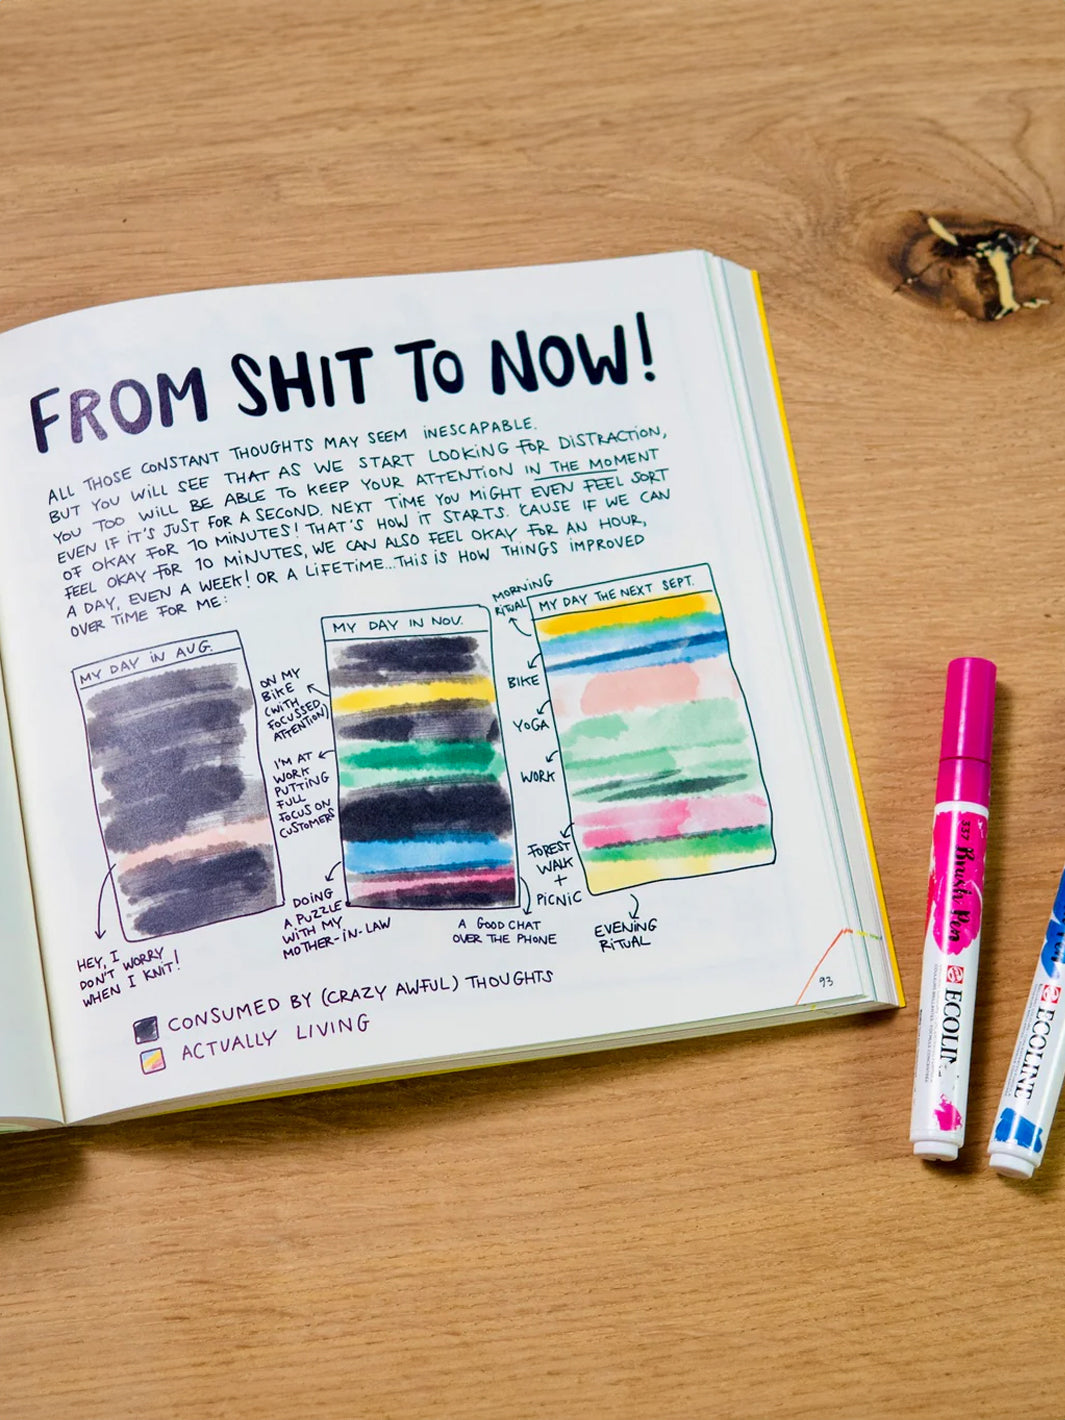 FROM SHIT TO NOW!
ALL THOSE CONSTANT THOUGHTS MAY SEEM INESCAPABLE.
BUT YOU WILL SEE THAT AS WE START LOOKING FOR DISTRACTION,
YOU TOO WILL BE ABLE TO KEEP YOUR ATTENTION IN THE MOMENT
EVEN IF IT'S JUST FOR A SECOND. NEXT TIME YOU MIGHT EVEN FEEL SORT
OF OKAY FOR 10 MINUTES! THAT'S HOW IT STARTS. 'CAUSE IF WE CAN
FEEL OKAY FOR 10 MINUTES, WE CAN ALSO FEEL OKAY FOR AN HOUR,
A DAY, EVEN A WEEK! OR A LIFETIME...THIS IS HOW THINGS IMPROVED
OVER TIME FOR ME:
MY DAY IN AUG.
HEY, I
DON'T WORRY
WHEN I KNIT!
MY DAY IN NOV.
ON MY
BIKE
(WITH
FOCUSSED
ATTENTION)
I'M AT
WORK
PUTTING
FULL
FOCUS ON
CUSTOMERS
DOING
A PUZZLE
WITH MY
MOTHER-IN-LAW
A GOOD CHAT
OVER THE PHONE
MY DAY THE NEXT SEPT.
MORNING
RITUAL
BIKE
YOGA
WORK
FOREST
WALK
+
PICNIC
EVENING
RITUAL
CONSUMED BY (CRAZY AWFUL) THOUGHTS
ACTUALLY LIVING
93
337 Brush Pen
ECOLINE
Pen
ECOLINE